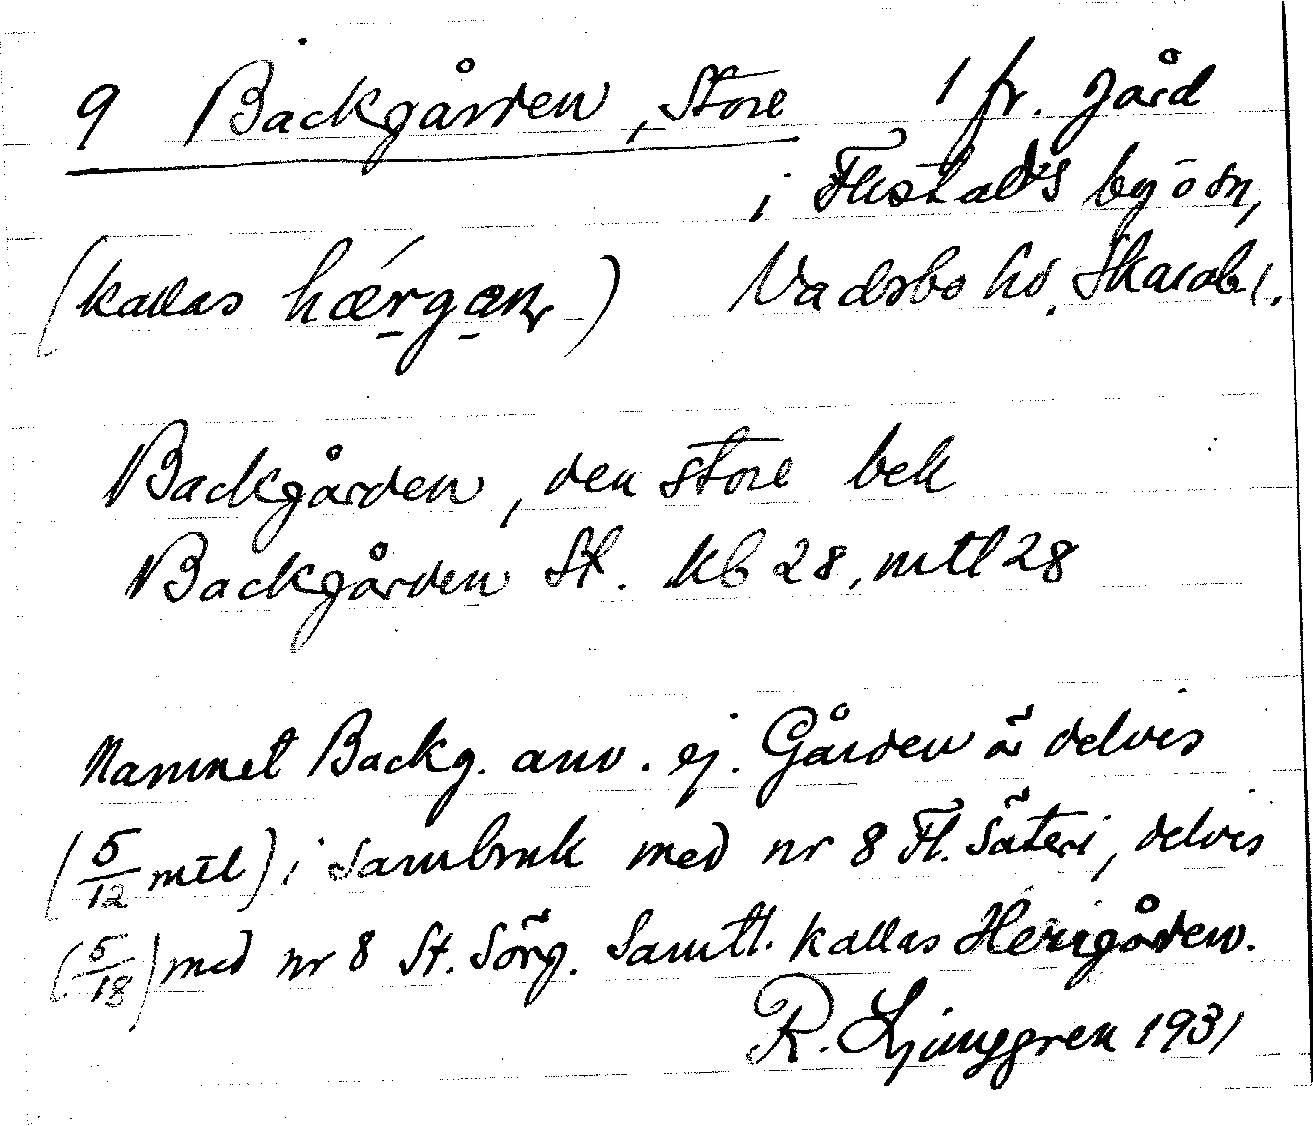 9 Backgården, Store 1 fr. gård
i Flistads by o sn,
(kallas hǽrgan) Vadsbo hd. Skarab l.
Backgården, den store bek
Backgården St. kb 28, mtl 28
Namnet Backg. anv. ej. Gården är delvis
(5/12 mtl) i sambruk med nr 8 Fl. Säteri, delvis
(5/18) med nr 8 St. Sörg. Samtl. kallas Herrgården.
R. Ljunggren 1931